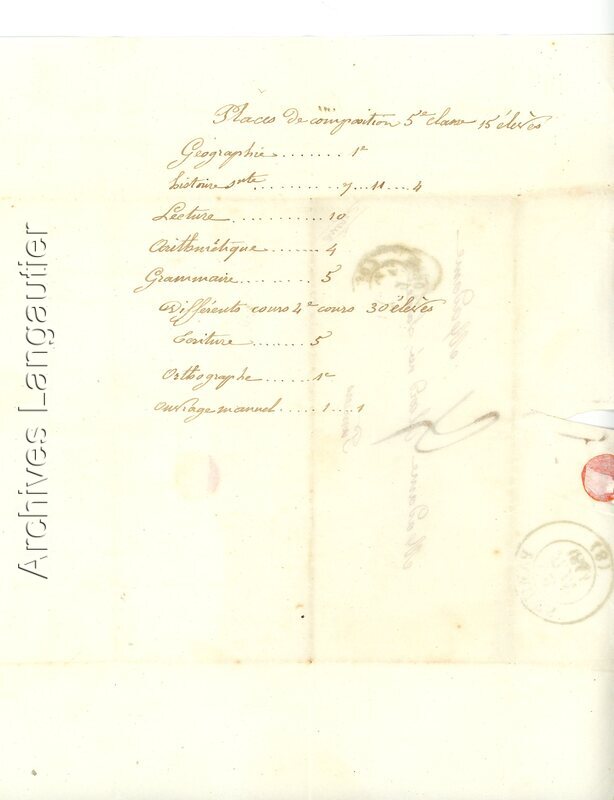 Places de composition 5e classe 15 élèves
Géographie ....... 1e
histoire Snte .......... 7 ... 11 .... 4
Lecture ........... 10
Arithmétique ........ 4
Grammaire .......... 5
Différents cours 4e cours 30 élèves
Ecriture ........ 5
Orthographe ...... 1e
Ouvrage manuel ..... 1 .. 1
Archives Langautier